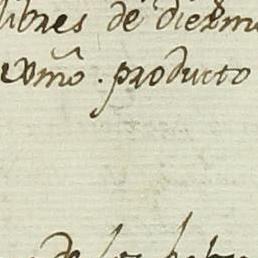 libres de diezmo
exmõ. producto
de los